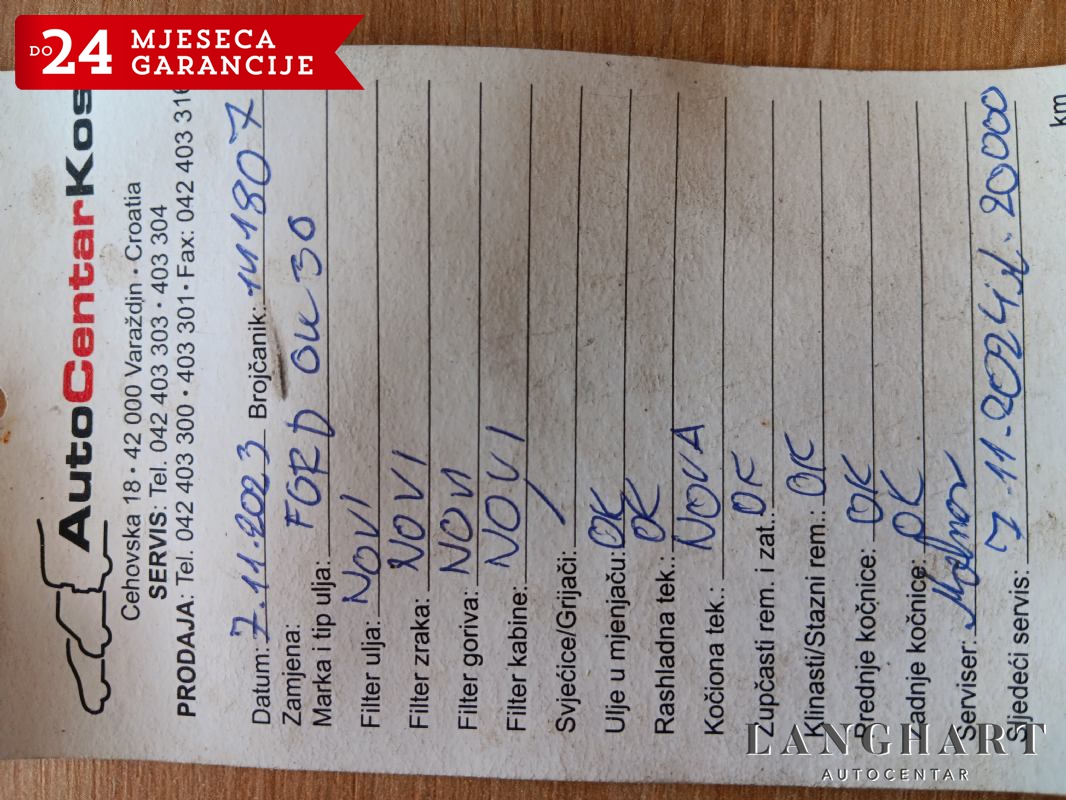 DO 24 MJESECA
GARANCIJE
AutoCentarKos
Cehovska 18 • 42 000 Varaždin • Croatia
SERVIS: Tel. 042 403 303 • 403 304
PRODAJA: Tel. 042 403 300 • 403 301 • Fax: 042 403 316
Datum: 7.11.2023 Brojčanik: 141807
Zamjena:
Marka i tip ulja: FORD 0W30
Filter ulja: NOVI
Filter zraka: NOVI
Filter goriva: NOVI
Filter kabine: NOVI
Svjećice/Grijači: /
Ulje u mjenjaču: OK
Rashladna tek.: OK
Kočiona tek.: NOVA
Zupčasti rem. i zat.: OK
Klinasti/Stazni rem.: OK
Prednje kočnice: OK
Zadnje kočnice: OK
Serviser:
Sljedeći servis: 7.11.2024 il. 20000
km
LANGHART
AUTOCENTAR